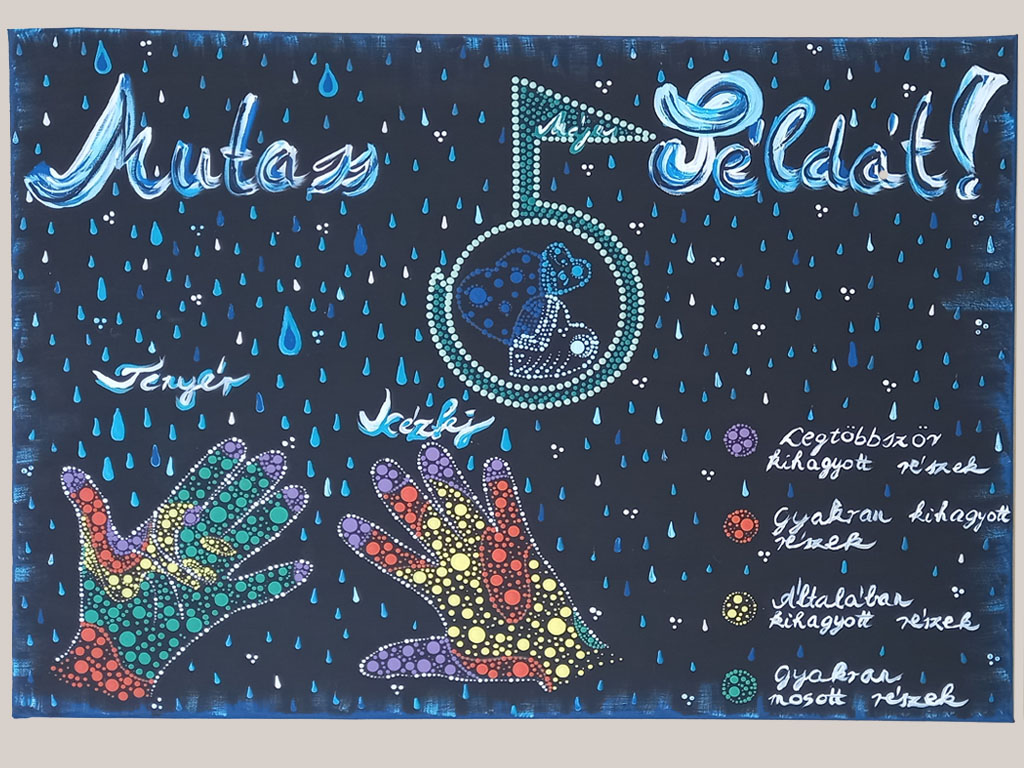 Mutass Példát!
Május
5
Tenyér
Kézfej
Legtöbbször
kihagyott részek
Gyakran kihagyott
részek
Általában
kihagyott részek
gyakran
mosott részek